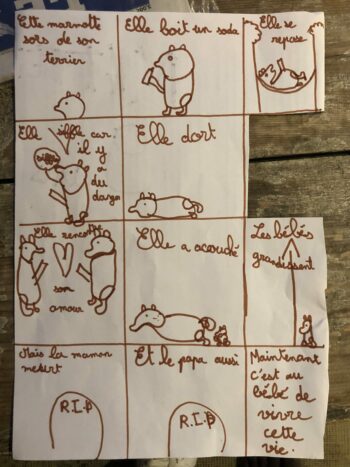 Cette marmotte
sors de son
terrier
Elle boit un soda
Elle se
repose
Elle siffle car
il y
a
du
danger
siffle
Elle dort
Elle rencontre
son
amour
Elle a acouché
Les bébés
grandissent
Mais la maman
meurt
R.I.P
Et le papa aussi
R.I.P
Maintenant
c'est au
bébé de
vivre
cette
vie.